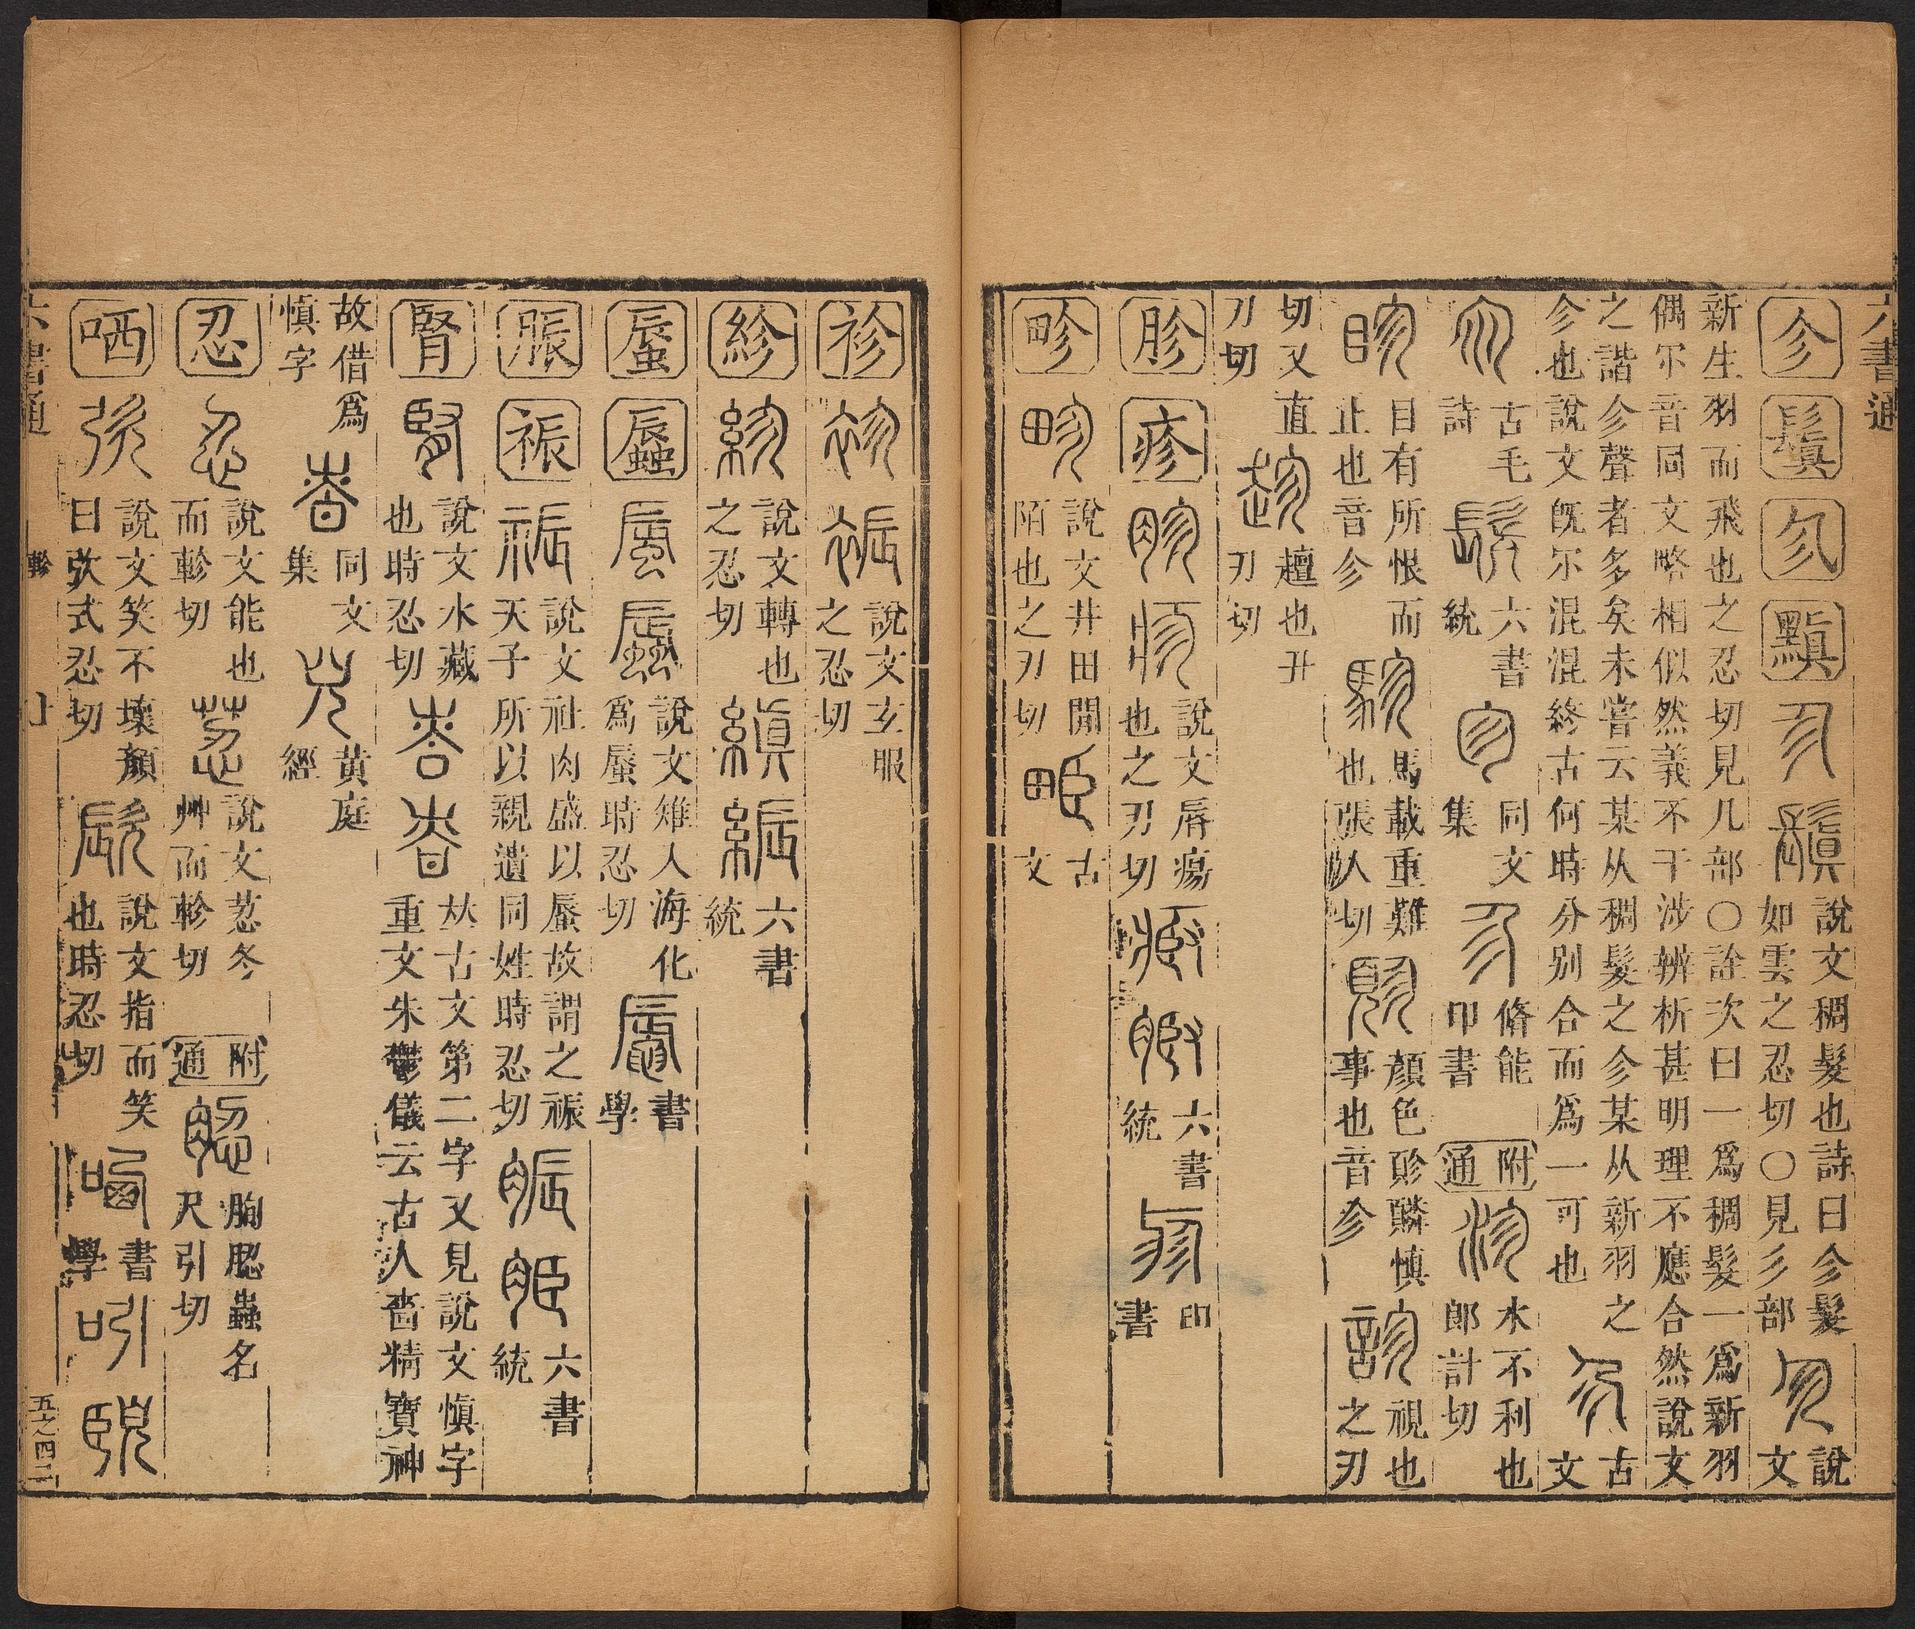 六書通
㐱 鬒 𠘱 黰 說文稠髮也詩曰㐱髮如雲之忍切〇見彡部 說文
新生羽而飛也之忍切見几部〇詮次曰一爲稠髮一爲新羽
偶尒音同文略相似然義不干涉辨析甚明理不應合然說文
之諧㐱聲者多矣未嘗云某从稠髮之㐱某从新羽之
㐱也說文旣尒混混終古何時分别合而爲一可也 古文
古毛詩 六書統 同文集 脩能印書 附通 水不利也郎計切
目有所恨而止也音㐱 馬載重難也張人切 顏色㐱䫰慎事也音㐱 視也之刃
切又直刃切 趁 䞾也丑刃切
胗 疹 說文脣瘍也之刃切 六書統 印書
畛 說文井田間陌也之刃切 古文
袗 說文玄服之忍切
紾 說文轉也之忍切 六書統
蜃 說文雉入海化爲蜃時忍切 書學
脤 祳 說文社肉盛以蜃故謂之祳天子所以親遺同姓時忍切 六書統
腎 說文水藏也時忍切 𠀤古文第二字又見說文慎字重文朱鬱儀云古人嗇精寶神
故借爲慎字 同文集 黃庭經
忍 說文能也而軫切 說文荵冬艸而軫切 附通 胊䏰蟲名尺引切
哂 說文笑不壞顏曰弞式忍切 說文指而笑也時忍切 書學
六書通 軫 上 五之四二